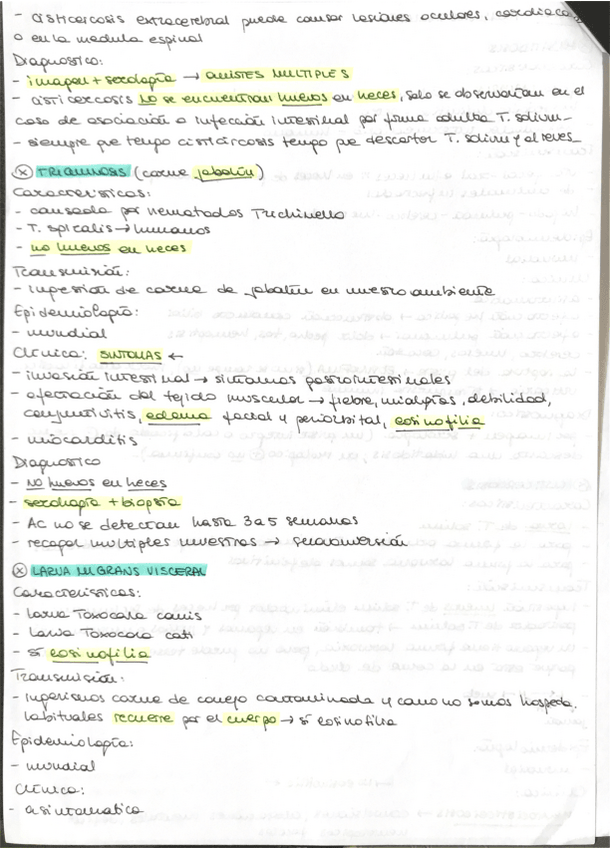 - cisticercosis extracerebral puede causar lesiones oculares, cardiacas
o en la medula espinal
Diagnostico:
- imagen + serología → QUISTES MULTIPLES
- cisticercosis NO se encuentran huevos en heces, solo se observarían en el
caso de asociación a infección intestinal por forma adulta T. solium -
- siempre que tengo cisticircosis tengo que descartar T. solium y al reves -
(x) TRIQUINOSIS (carne jabalín)
Características:
- causada por nematodos Trichinella
- T. spiralis → humanos
- no huevos en heces
Transmisión:
- Ingestion de carne de jabalín en nuestro ambiente
Epidemiología:
- mundial
Clínica: SINTOMAS ←
- invasión intestinal → síntomas gastrointestinales
- afectación del tejido muscular → fiebre, mialgias, debilidad,
conjuntivitis, edema facial y periorbital, eosinofilia
- miocarditis
Diagnostico
- NO huevos en heces
- serología + biopsia
- AC no se detectan hasta 3 a 5 semanas
- recoger multiples muestras → seroconversión
(x) LARVA MIGRANS VISCERAL
Características:
- Larva Toxocara canis
- Larva Toxocara cati
- SÍ eosinofilia
Transmisión:
- Ingerimos carne de conejo contaminada y como no somos hosped.
habituales recurre por el cuerpo → sí eosinofilia
Epidemiología:
- mundial
Clínica:
- asintomatica